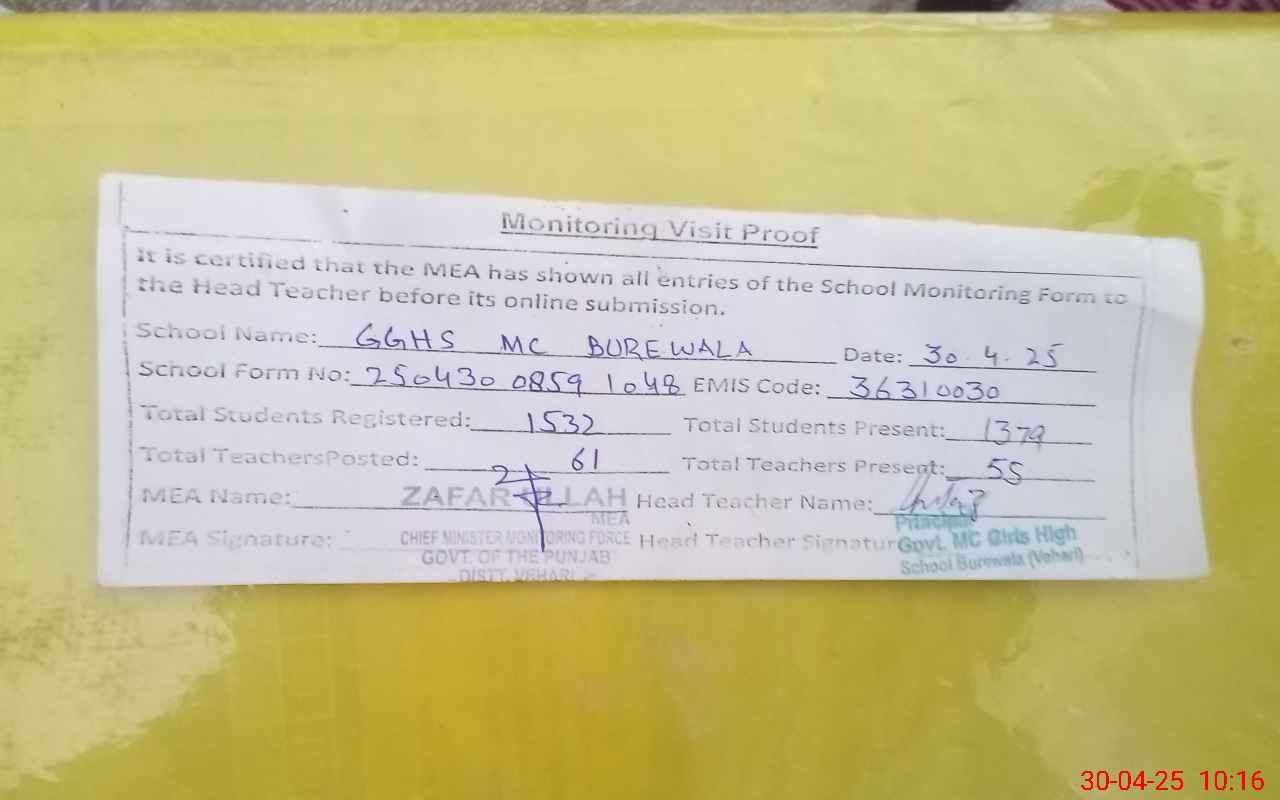 Monitoring Visit Proof
It is certified that the MEA has shown all entries of the School Monitoring Form to
the Head Teacher before its online submission.
School Name: GGHS MC BUREWALA Date: 30.4.25
School Form No: 250430 0859 1048 EMIS Code: 36310030
Total Students Registered: 1532 Total Students Present: 1379
Total TeachersPosted: 61 Total Teachers Present: 55
MEA Name: ZAFAR ULLAH Head Teacher Name:
MEA
Principal
MEA Signature: CHIEF MINISTER MONITORING FORCE Head Teacher Signatur Govt. MC Girls High
GOVT. OF THE PUNJAB School Burewala (Vehari)
DISTT. VEHARI
30-04-25 10:16